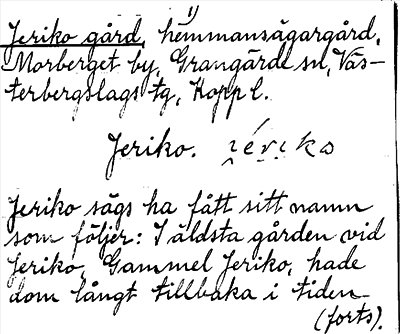 Jeriko gård, hemmansägargård, 1)
Morberget by, Grangärde sn, Väs-
terbergslags tg, Koppl.
Jeriko.
Jeriko sägs ha fått sitt namn
som följer: I äldsta gården vid
Jeriko, Gammel Jeriko, hade
dom långt tillbaka i tiden
(forts).